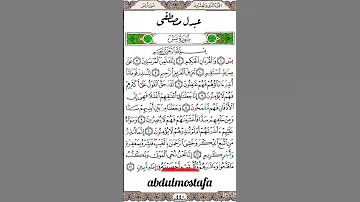 عبدل مصطفى
سُورَةُ يسٓ
بِسْمِ اللَّهِ الرَّحْمَٰنِ الرَّحِيمِ
يسٓ وَالْقُرْآنِ الْحَكِيمِ إِنَّكَ لَمِنَ الْمُرْسَلِينَ عَلَىٰ
صِرَاطٍ مُسْتَقِيمٍ تَنْزِيلَ الْعَزِيزِ الرَّحِيمِ لِتُنْذِرَ قَوْمًا
مَا أُنْذِرَ آبَاؤُهُمْ فَهُمْ غَافِلُونَ لَقَدْ حَقَّ الْقَوْلُ عَلَىٰ أَكْثَرِهِمْ
فَهُمْ لَا يُؤْمِنُونَ إِنَّا جَعَلْنَا فِي أَعْنَاقِهِمْ أَغْلَالًا فَهِيَ إِلَى
الْأَذْقَانِ فَهُمْ مُقْمَحُونَ وَجَعَلْنَا مِنْ بَيْنِ أَيْدِيهِمْ سَدًّا
وَمِنْ خَلْفِهِمْ سَدًّا فَأَغْشَيْنَاهُمْ فَهُمْ لَا يُبْصِرُونَ
مَنِ اتَّبَعَ الذِّكْرَ وَخَشِيَ الرَّحْمَٰنَ بِالْغَيْبِ فَبَشِّرْهُ بِمَغْفِرَةٍ
وَأَجْرٍ كَرِيمٍ إِنَّا نَحْنُ نُحْيِي الْمَوْتَىٰ وَنَكْتُبُ
مَا قَدَّمُوا وَآثَارَهُمْ وَكُلَّ شَيْءٍ أَحْصَيْنَاهُ فِي إِمَامٍ مُبِينٍ
abdulmostafa